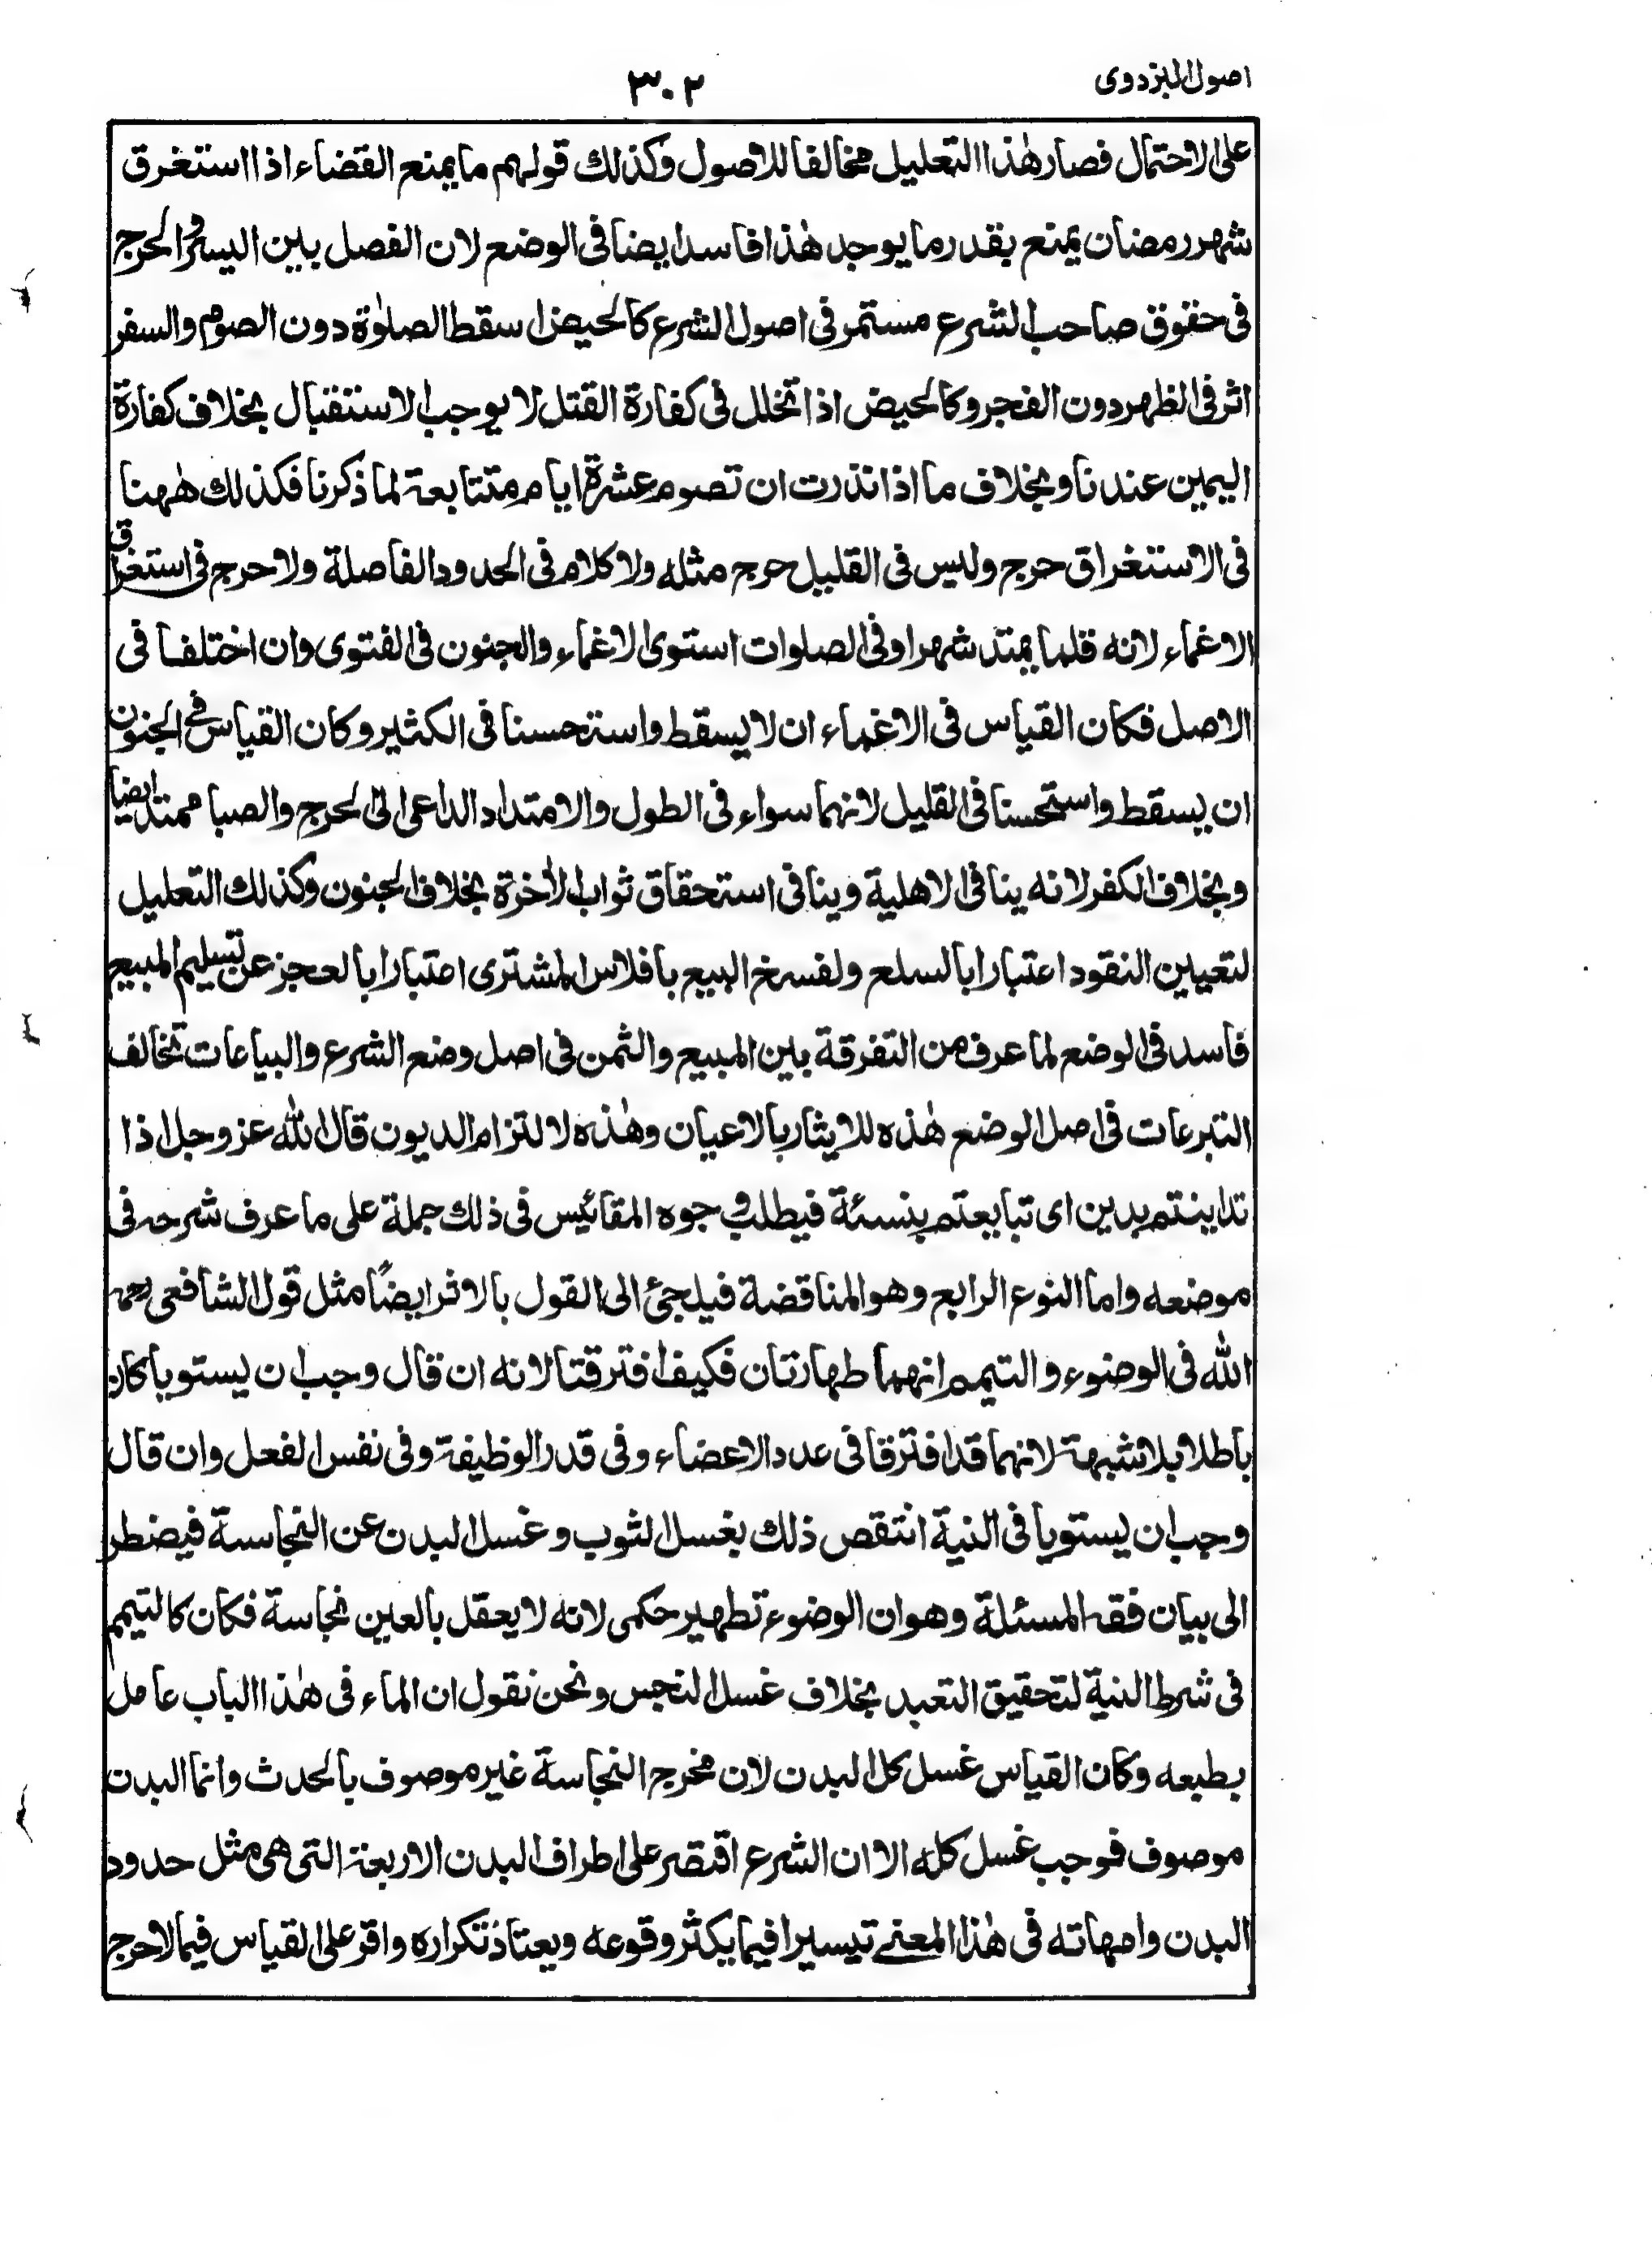 اصول البزدوی
۳۰۲
علی الاحتمال فصار هٰذا التعلیل مخالفا للاصول وکذلك قولهم ما یمنع القضاء اذا استغرق
شهر رمضان یمنع بقدر ما یوجد هٰذا فاسد ایضا فی الوضع لان الفصل بین الیسر والحرج
فی حقوق صاحب الشرع مستمر فی اصول الشرع کالحیض اسقط الصلوٰة دون الصوم والسفر
اثر فی الظهر دون الفجر وکالحیض اذا تخلل فی کفارة القتل لا یوجب الاستقبال بخلاف کفارة
الیمین عندنا وبخلاف ما اذا نذرت ان تصوم عشرة ایام متتابعة لما ذکرنا فکذلك هٰهنا
فی الاستغراق حرج ولیس فی القلیل حرج مثله ولا کلام فی الحدود الفاصلة ولا حرج فی استغراق
الاغماء لانه قلما یمتد شهرا وفی الصلوات استوی الاغماء والجنون فی الفتوی وان اختلفا فی
الاصل فکان القیاس فی الاغماء ان لا یسقط واستحسنا فی الکثیر وکان القیاس فی الجنون
ان یسقط واستحسنا فی القلیل لانهما سواء فی الطول والامتداد الداعی الی الحرج والصبا ممتد ایضا
وبخلاف الکفر لانه ینافی الاهلیة وینافی استحقاق ثواب الاٰخرة بخلاف الجنون وکذلك التعلیل
لتعیین النقود اعتبارا بالسلع ولفسخ البیع بافلاس المشتری اعتبارا بالعجز عن تسلیم المبیع
فاسد فی الوضع لما عرف من التفرقة بین المبیع والثمن فی اصل وضع الشرع والبیاعات تخالف
التبرعات فی اصل الوضع هٰذه للایثار بالاعیان وهٰذه لالتزام الدیون قال الله عز وجل اذا
تداینتم بدین ای تبایعتم بنسئة فیطلب وجوه المقائیس فی ذلك جملة علی ما عرف شرحه فی
موضعه واما النوع الرابع وهو المناقضة فیلجئ الی القول بالاثر ایضًا مثل قول الشافعی رحمه
الله فی الوضوء والتیمم انهما طهارتان فکیف افترقتا لانه ان قال وجب ان یستویا کان
باطلا بلا شبهة لانهما قد افترقا فی عدد الاعضاء وفی قدر الوظیفة وفی نفس الفعل وان قال
وجب ان یستویا فی النیة انتقص ذلك بغسل الثوب وغسل البدن عن النجاسة فیضطر
الی بیان فقه المسئلة وهو ان الوضوء تطهیر حکمی لانه لا یعقل بالعین نجاسة فکان کالتیمم
فی شرط النیة لتحقیق التعبد بخلاف غسل النجس ونحن نقول ان الماء فی هٰذا الباب عامل
بطبعه وکان القیاس غسل کل البدن لان مخرج النجاسة غیر موصوف بالحدث وانما البدن
موصوف فوجب غسل کله الا ان الشرع اقتصر علی اطراف البدن الاربعة التی هی مثل حدود
البدن وامهاته فی هٰذا المعنے تیسیرا فیما یکثر وقوعه ویعتاد تکراره واقر علی القیاس فیما لا حرج